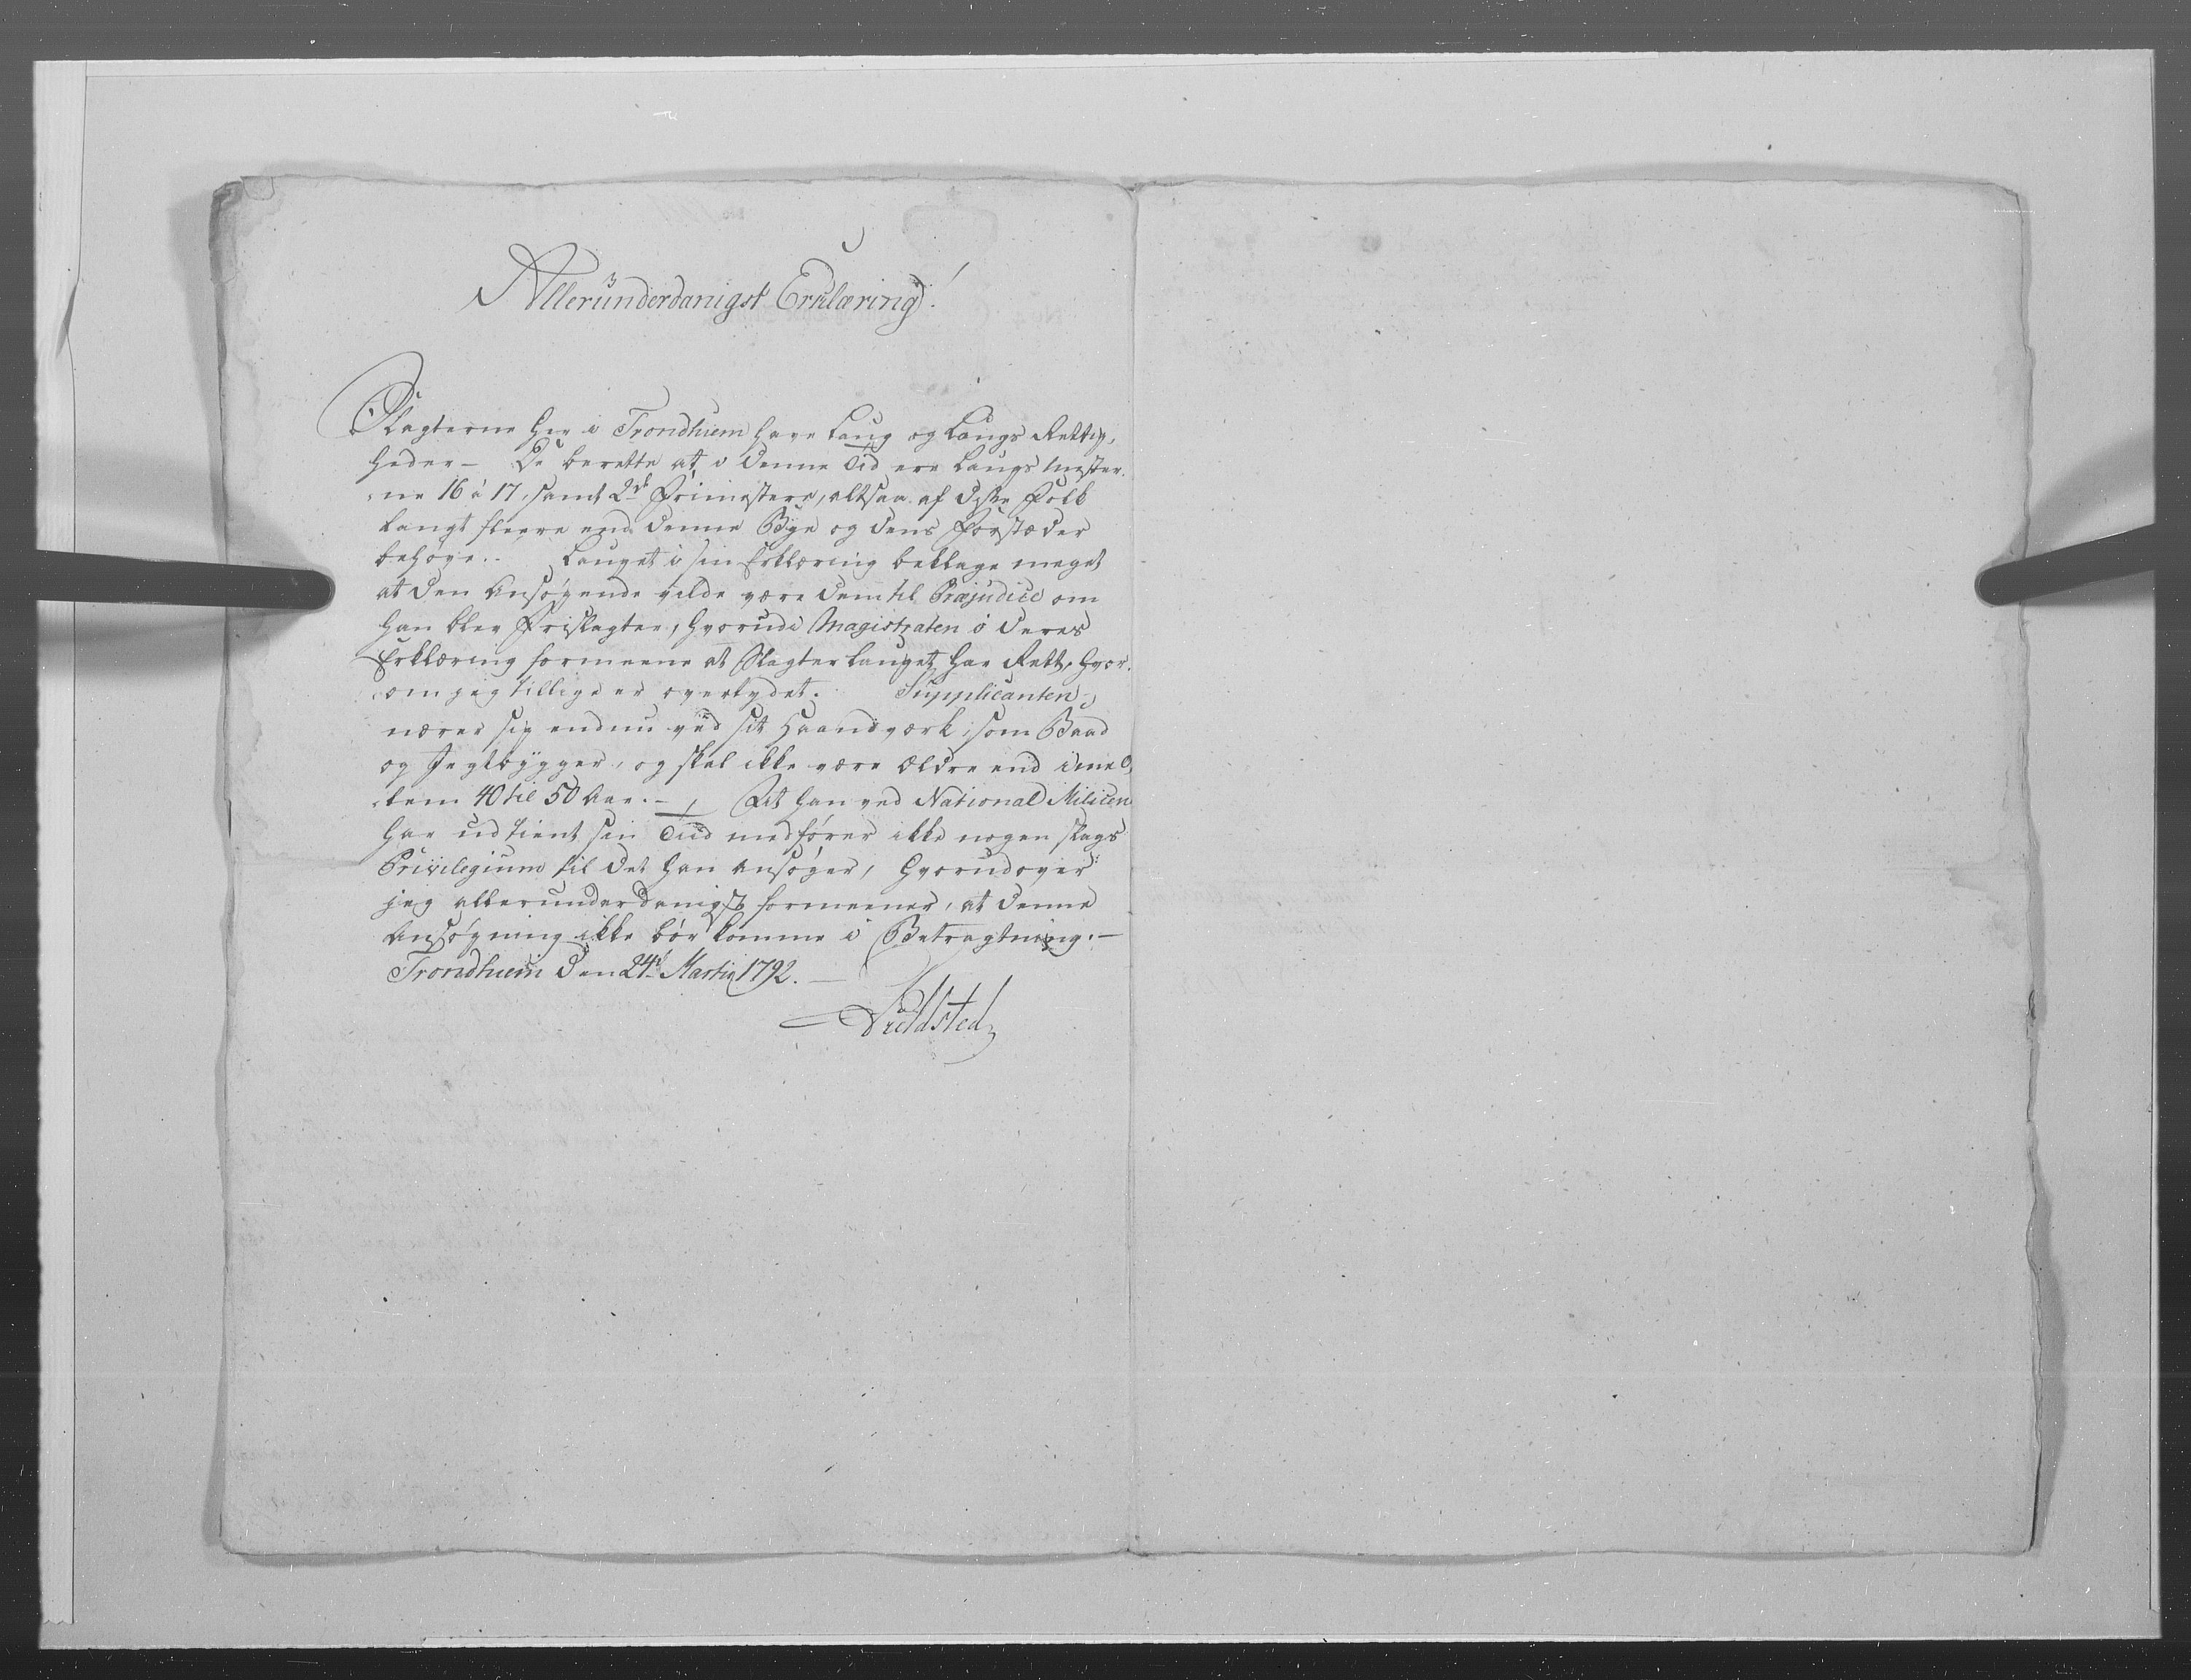 Allerunderdanigst Erklæring!
Slagterne her i Trondhiem have Laug og Laugs Rettig,
heder – De berette at i denne Tid ere Laugs Mester,
,ne 16 à 17, samt 2de Frimestere, altsaa af disse Folk
langt fleere end denne Bye og dens Forstæder
behøve. – Lauget i sin Erklæring beklage meget
at den Ansøgende vilde være dem til Præjudice om
han blev Frislagter, hvorudi Magistraten i deres
Erklæring formeene at Slagterlauget har Rett, hvor,
,om jeg tillige er overtydet. Supplicanten
nærer sig endnu ved sit Haandværk, som Baad
og Jegtbygger, og skal ikke være ældre end imel,
,lem 40 til 50 Aar. – At han ved National Milicen
har udtient sin Tiid medfører ikke nogen slags
Privilegium til det han ansøger, hvorudover
jeg allerunderdanigst formeener, at denne
Ansøgning ikke bør komme i Betragtning. –
Trondhiem den 24de Martii 1792. –
Fieldsted